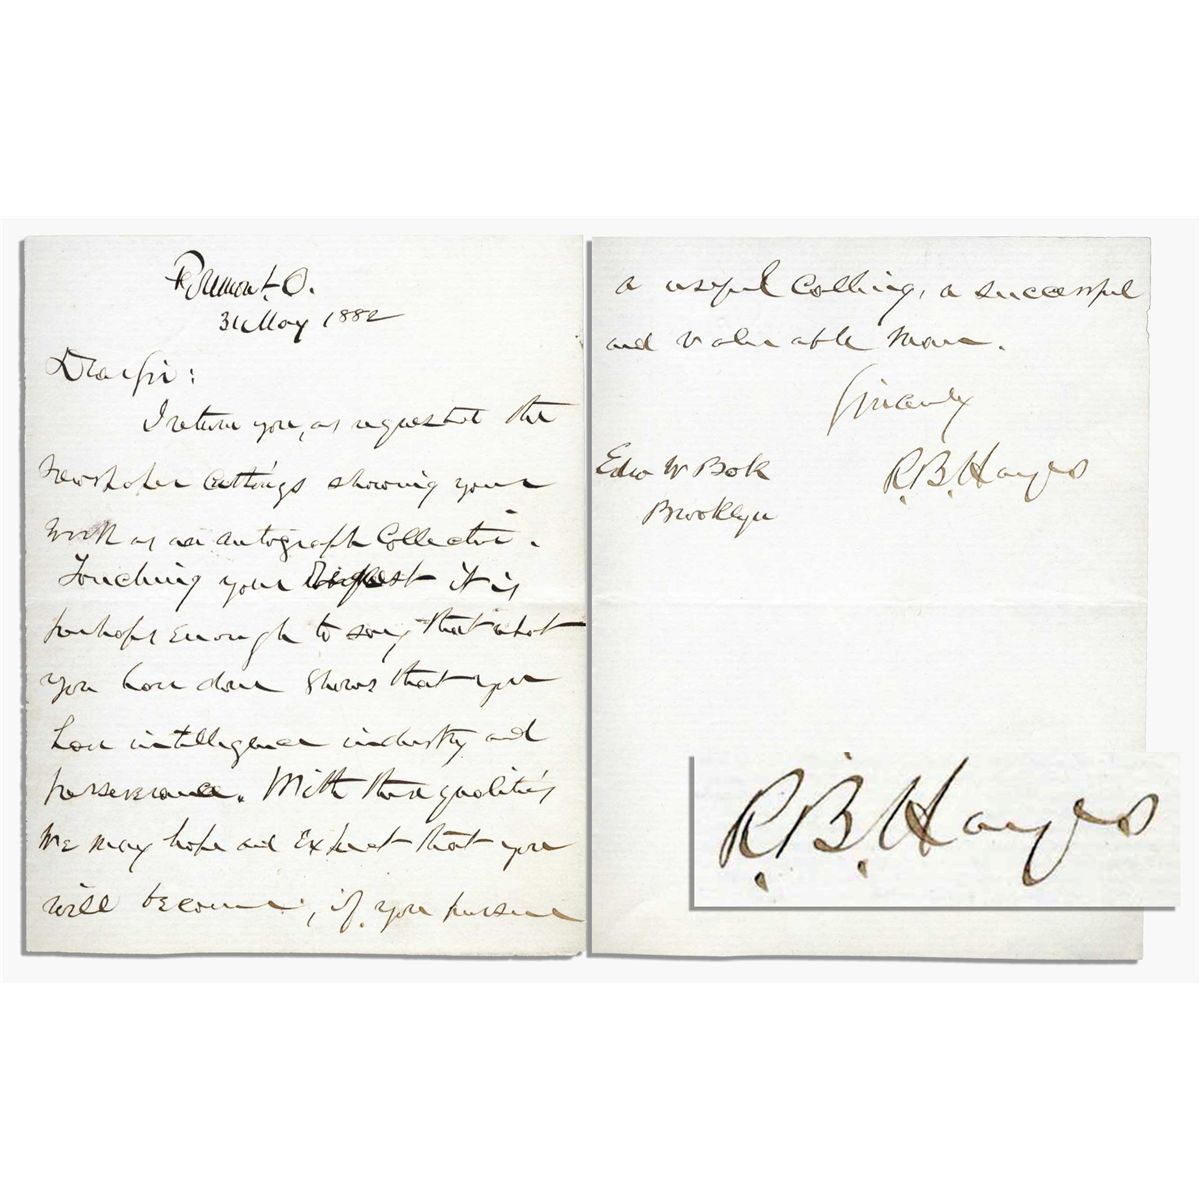 Fremont, O.
31 May 1882
Dear Sir:
I return you, as requested the
newspaper cuttings showing your
work as an autograph Collector.
Touching your request it is
perhaps enough to say that what
you have done shows that you
have intelligence industry and
perseverance. With these qualities
we may hope and expect that you
will become, if you pursue
a useful Calling, a successful
and valuable man.
Sincerely
R. B. Hayes
Edw W Bok
Brooklyn
R. B. Hayes